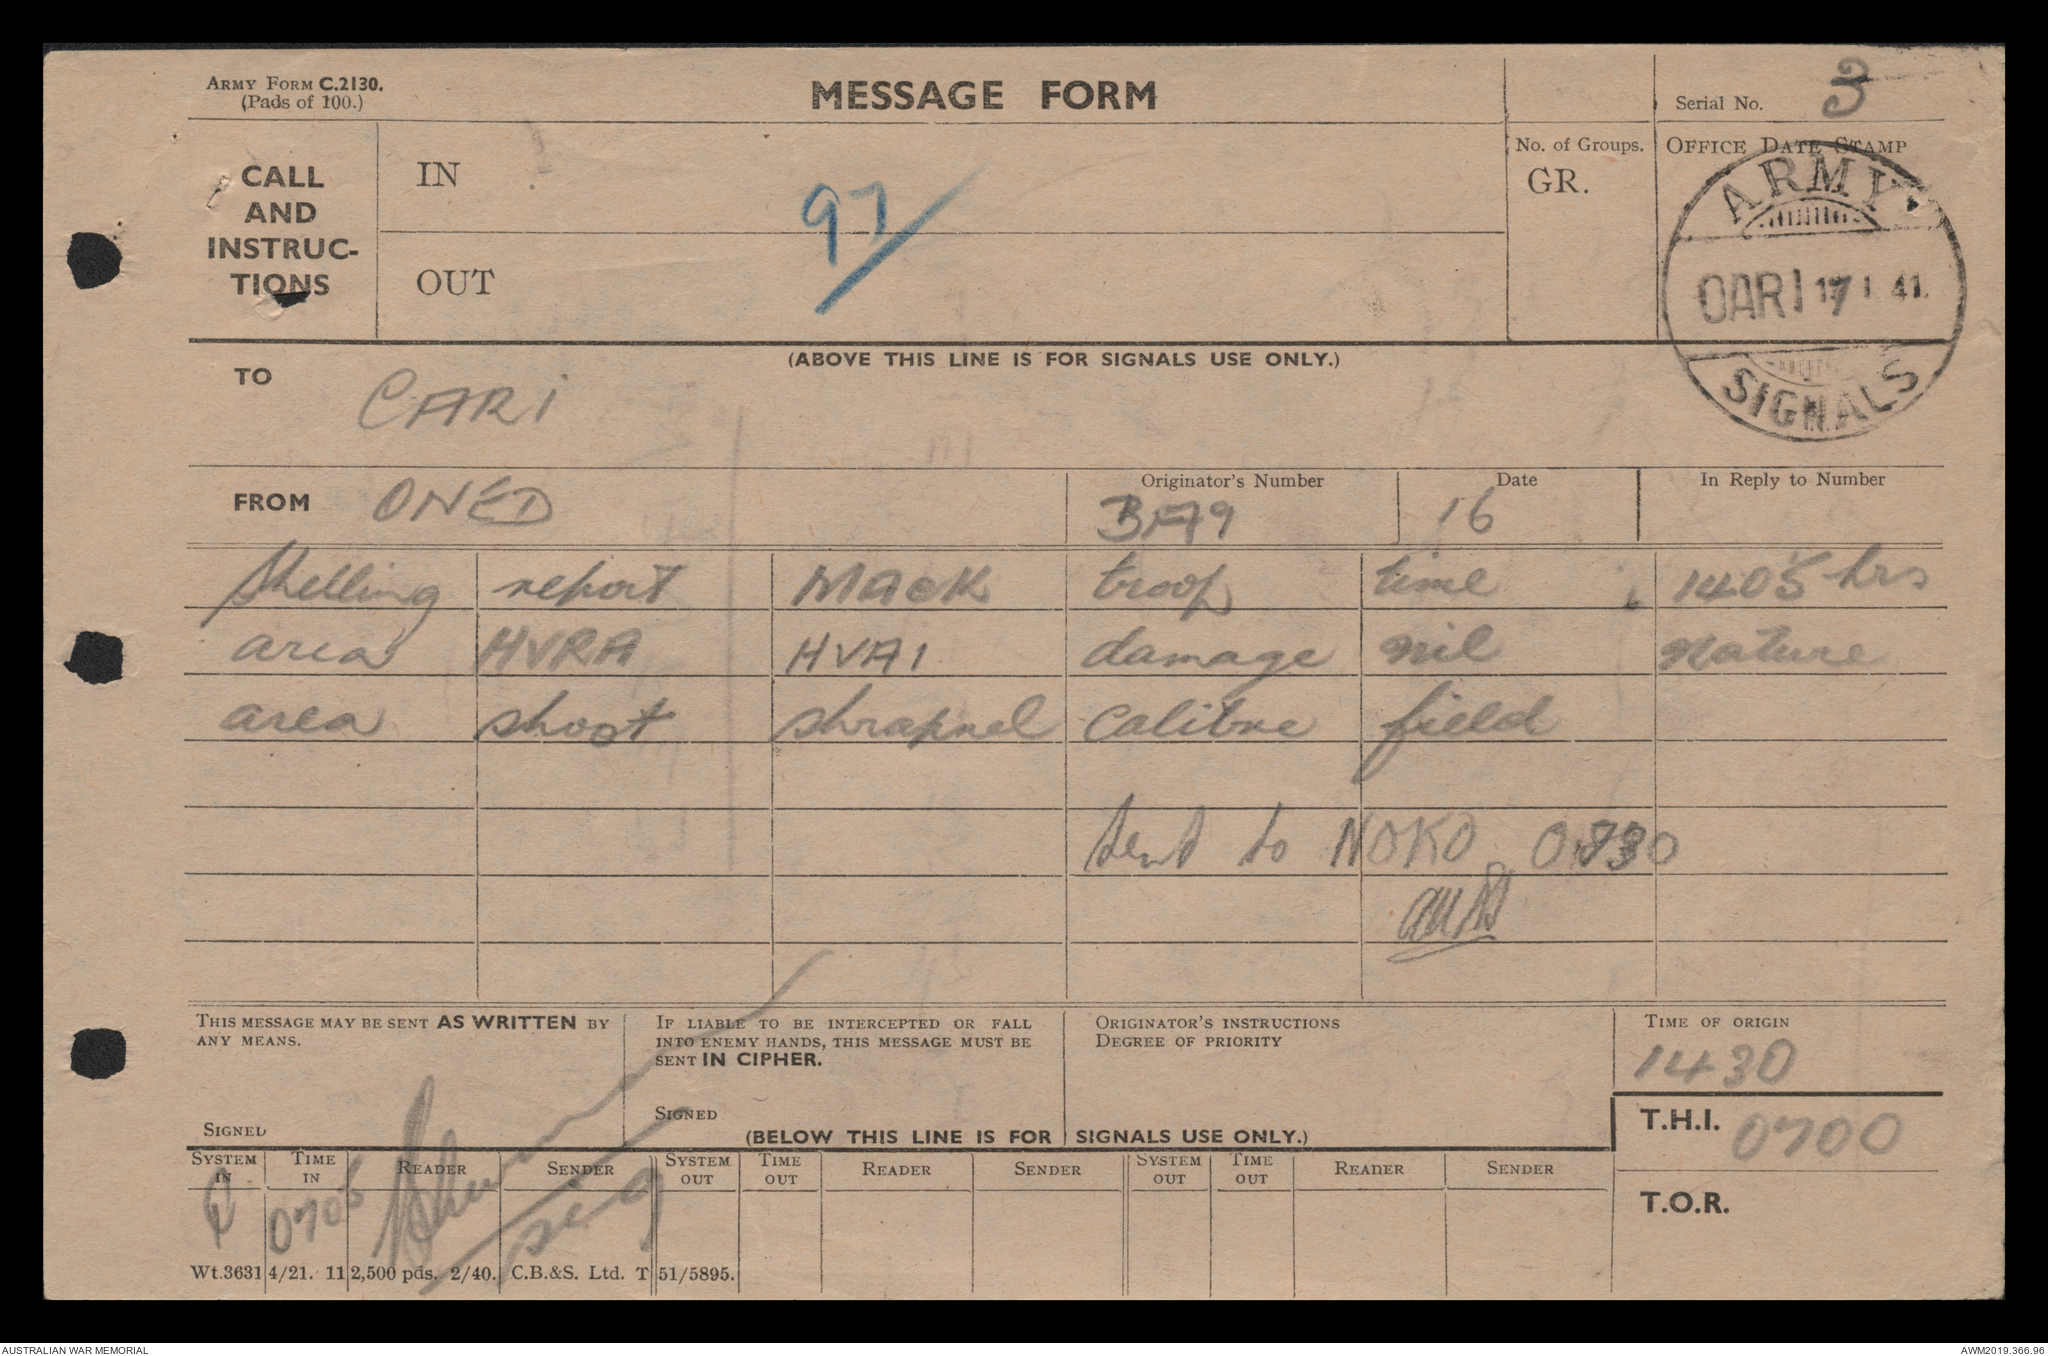 ARMY FORM C.2130.
(Pads of 100.)
MESSAGE FORM
Serial No. 3
CALL AND INSTRUC-TIONS
IN
OUT
97
No. of Groups.
GR.
OFFICE DATE STAMP
ARMY
OARI 17 I 41.
SIGNALS
(ABOVE THIS LINE IS FOR SIGNALS USE ONLY.)
TO CARI
FROM ONED
Originator's Number
Date 16
In Reply to Number
Shelling report MACK troop time 1405 hrs
area HVRA HVA1 damage nil nature
area shoot shrapnel calibre field
Sent to NOKO
THIS MESSAGE MAY BE SENT AS WRITTEN BY
ANY MEANS.
SIGNED
IF LIABLE TO BE INTERCEPTED OR FALL
INTO ENEMY HANDS, THIS MESSAGE MUST BE
SENT IN CIPHER.
SIGNED
ORIGINATOR'S INSTRUCTIONS
DEGREE OF PRIORITY
TIME OF ORIGIN
1430
T.H.I. 0700
T.O.R.
(BELOW THIS LINE IS FOR SIGNALS USE ONLY.)
SYSTEM IN TIME IN READER SENDER SYSTEM OUT TIME OUT READER SENDER SYSTEM OUT TIME OUT READER SENDER
0705
Wt.3631 4/21. 112,500 pds. 2/40. C.B.&S. Ltd. T 51/5895.
AUSTRALIAN WAR MEMORIAL
AWM2019.366.96